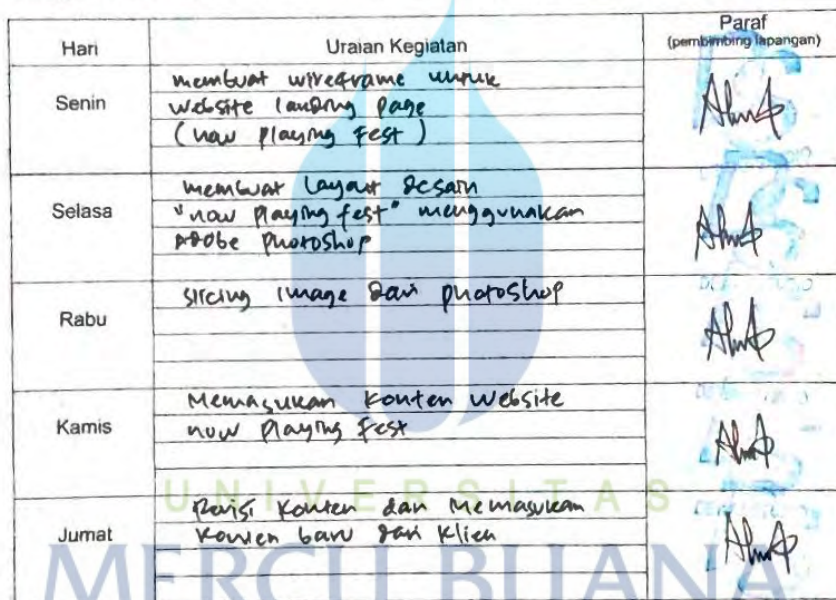 Hari
Uraian Kegiatan
Paraf
(pembimbing lapangan)
Senin
membuat wireframe untuk
website landing page
(now playing Fest)
Selasa
membuat layout desain
"now playing fest" menggunakan
Adobe photoshop
Rabu
slicing image dari photoshop
Kamis
Memasukan konten website
now playing Fest
Jumat
Revisi konten dan Memasukan
konten baru dari klien
UNIVERSITAS
MERCU BUANA